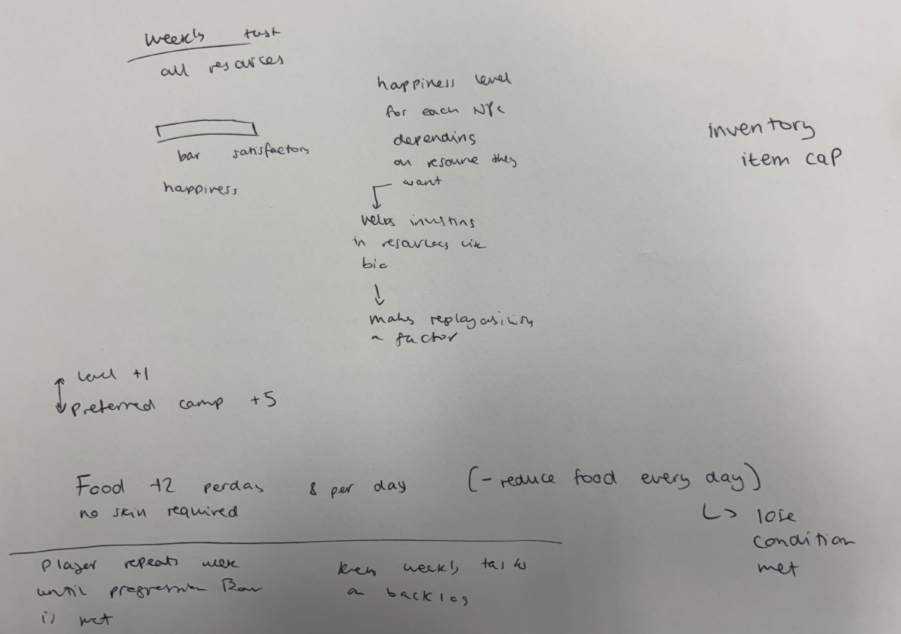 weekly task
all resorces
bar satisfactory
happiness
happiness level
for each NPC
depending
on resource they
want
helps investing
in resources like
makes replayability
a factor
inventory
item cap
level +1
preferred camp +5
Food +2 perday 8 per day (- reduce food every day)
no skin required
↳ lose
condition
met
player repeats week
until progression Bar
is met
keep weekly tasks
a backlog